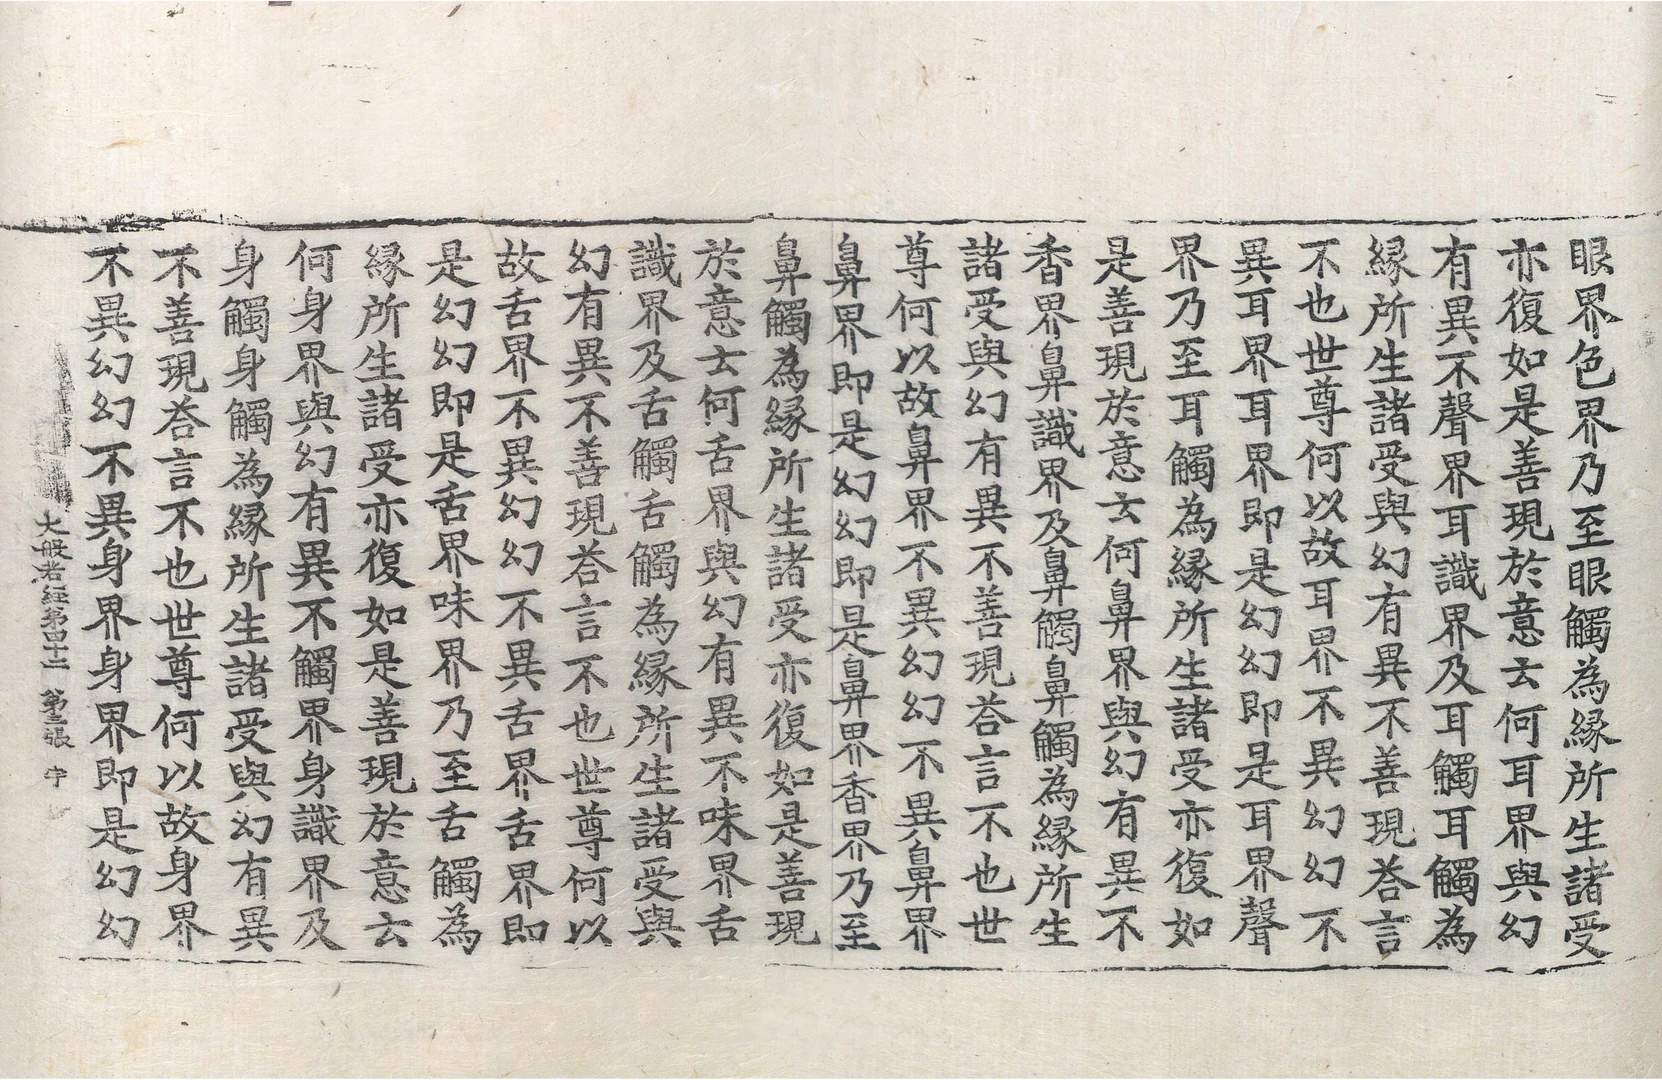 眼界色界乃至眼觸為縁所生諸受
亦復如是善現於意云何耳界與幻
有異不聲界耳識界及耳觸耳觸為
縁所生諸受與幻有異不善現荅言
不也世尊何以故耳界不異幻幻不
異耳界耳界即是幻幻即是耳界聲
界乃至耳觸為縁所生諸受亦復如
是善現於意云何鼻界與幻有異不
香界鼻識界及鼻觸鼻觸為縁所生
諸受與幻有異不善現荅言不也世
尊何以故鼻界不異幻幻不異鼻界
鼻界即是幻幻即是鼻界香界乃至
鼻觸為縁所生諸受亦復如是善現
於意云何舌界與幻有異不味界舌
識界及舌觸舌觸為縁所生諸受與
幻有異不善現荅言不也世尊何以
故舌界不異幻幻不異舌界舌界即
是幻幻即是舌界味界乃至舌觸為
縁所生諸受亦復如是善現於意云
何身界與幻有異不觸界身識界及
身觸身觸為縁所生諸受與幻有異
不善現荅言不也世尊何以故身界
不異幻幻不異身界身界即是幻幻
大般若經第四十二 第三張 宇